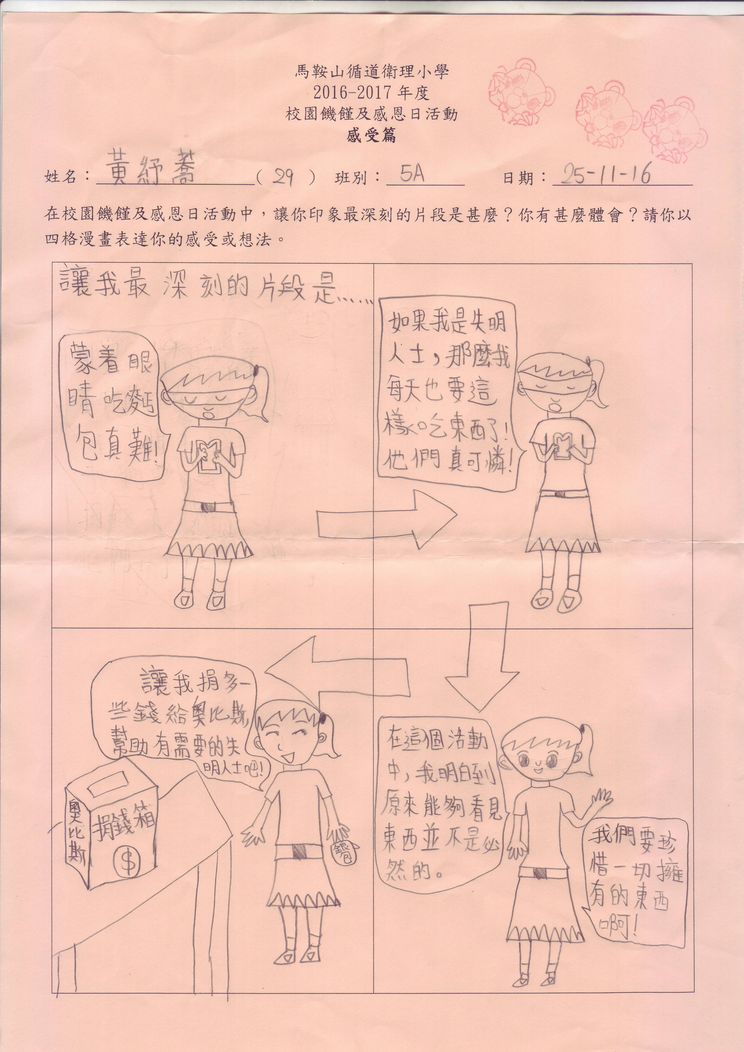 馬鞍山循道衛理小學
2016-2017 年度
校園饑饉及感恩日活動
感受篇
姓名：黃紓蕎（29） 班別：5A 日期：25-11-16
在校園饑饉及感恩日活動中，讓你印象最深刻的片段是甚麼？你有甚麼體會？請你以
四格漫畫表達你的感受或想法。
讓我最深刻的片段是……
蒙着眼
睛吃麪
包真難!
如果我是失明
人士，那麼我
每天也要這
樣吃東西了!
他們真可憐!
在這個活動
中，我明白到
原來能夠看見
東西並不是必
然的。
我們要珍
惜一切擁
有的東西
啊!
讓我捐多一
些錢給奧比斯,
幫助有需要的失
明人士吧!
奧比斯
捐錢箱
$